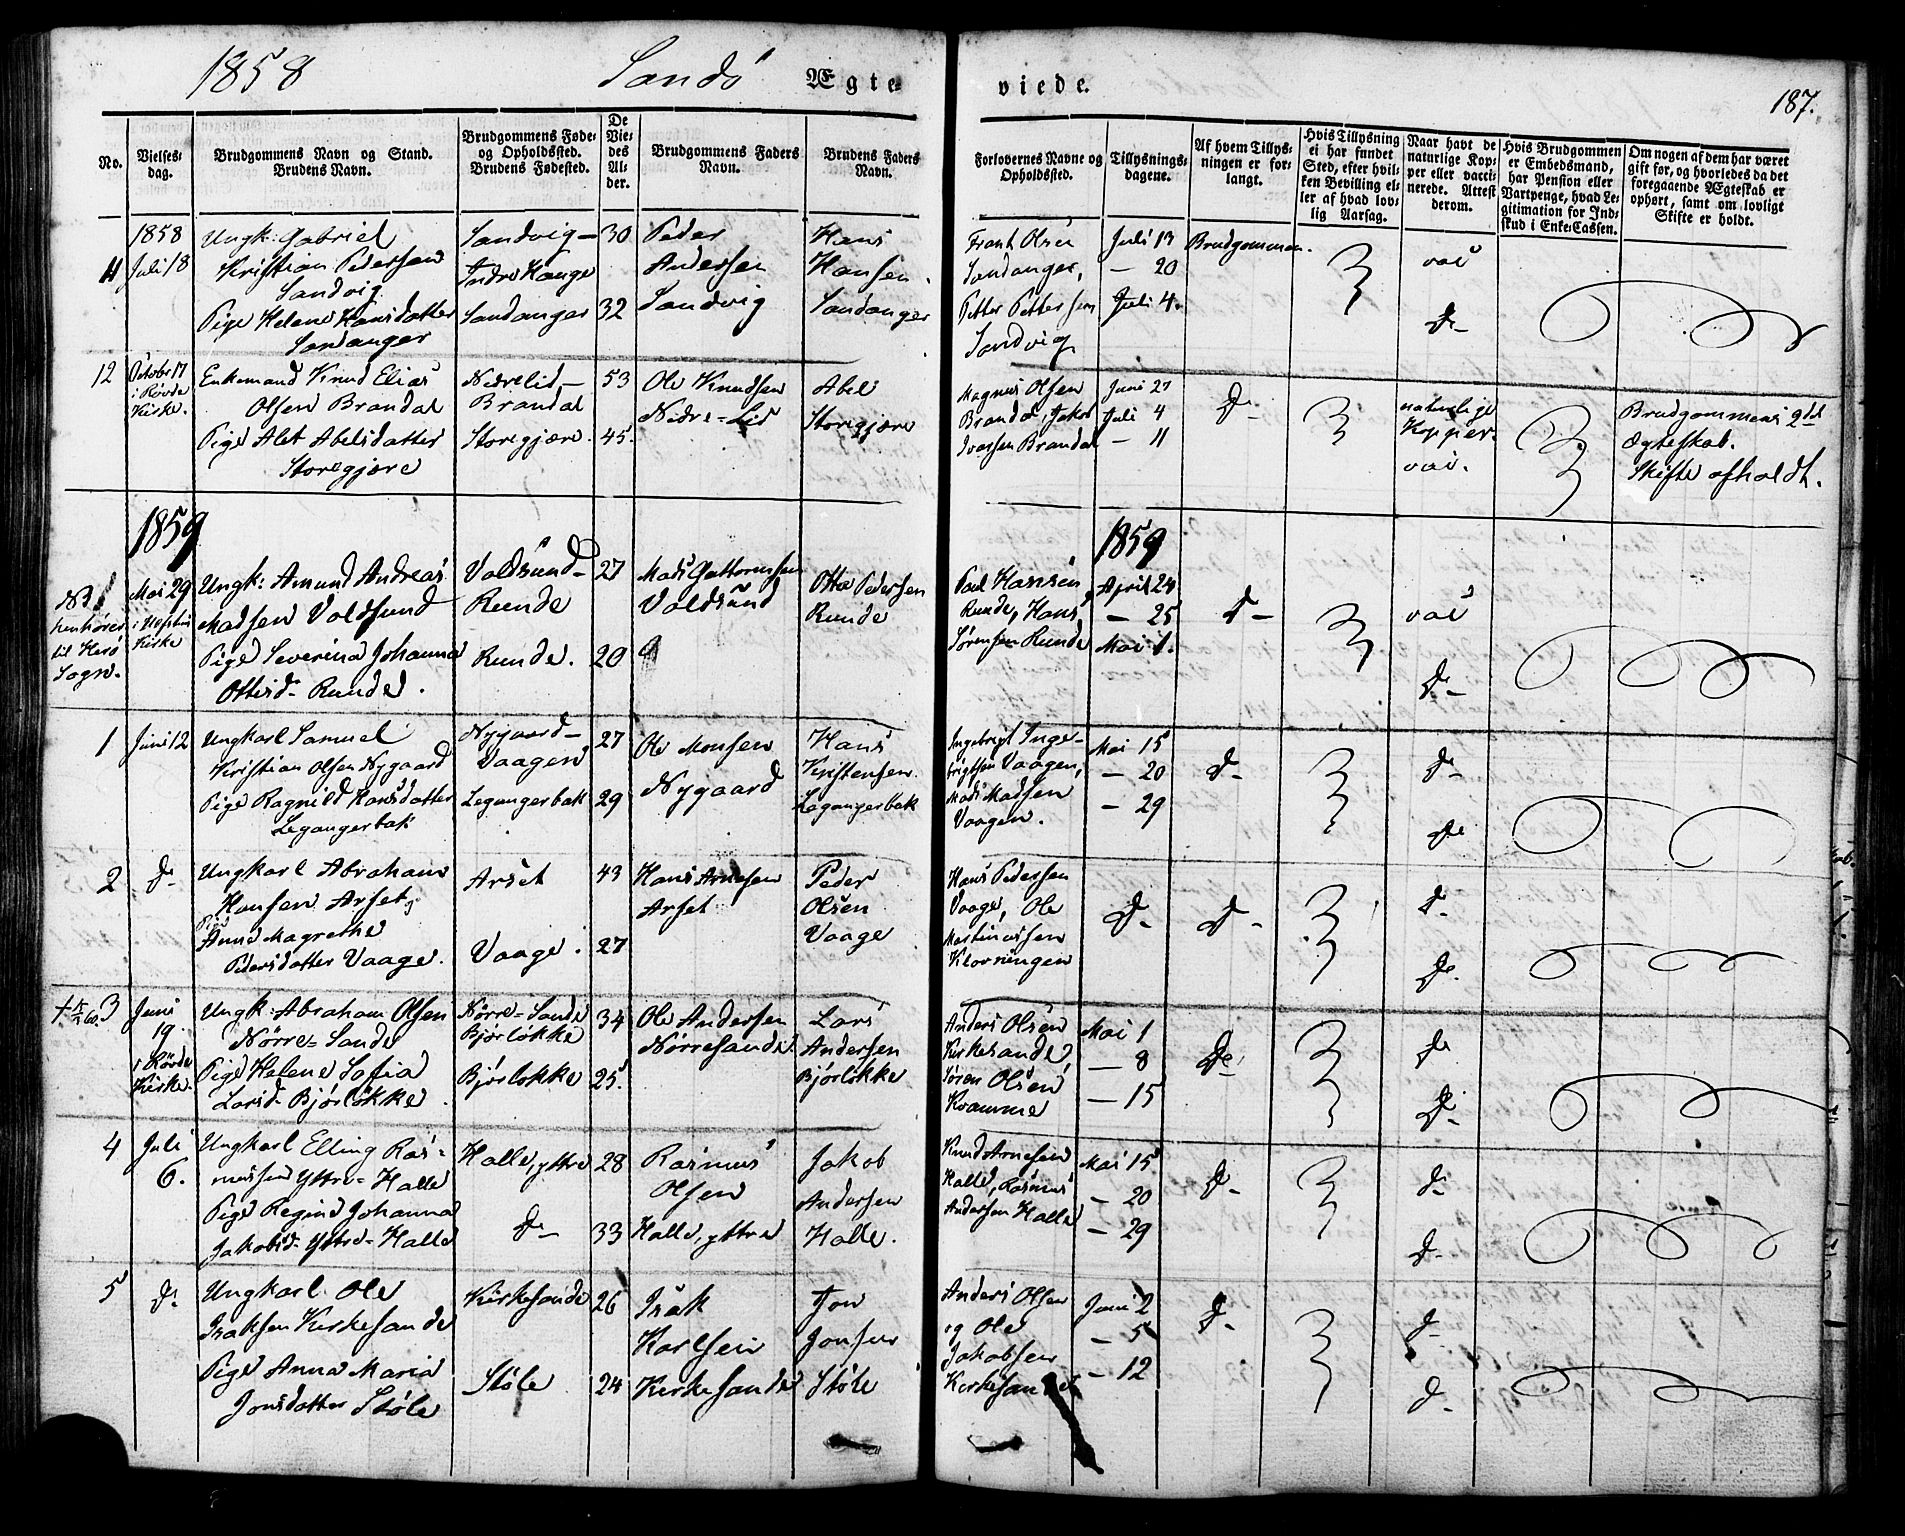 1858 Sandö Ægte
viede.
187.
No.
Vielses-
dag.
Brudgommens Navn og Stand.
Brudens Navn.
Brudgommens Føde-
og Opholdssted.
Brudens Fødested.
De
Vie-
des
Al-
der.
Brudgommens Faders
Navn.
Brudens Faders
Navn.
Forlovernes Navne og
Opholdssted.
Tillysnings-
dagene.
Af hvem Tillys-
ningen er for-
langt.
Hvis Tillysning
ei har fundet
Sted, efter hvil-
ken Bevilling el-
ler af hvad lov-
lig Aarsag.
Naar havt de
naturlige Kop-
per eller vacci-
nerede. Attest
derom.
Hvis Brudgommen
er Embedsmand,
har Pension eller
Vartpenge, hvad Le-
gitimation for Ind-
skud i Enke-Cassen.
Om nogen af dem har været
gift før, og hvorledes da det
foregaaende Ægteskab er
ophørt, samt om lovligt
Skifte er holdt.
11
1858
Juli 18
Ungk: Gabriel
Kristian Pedersen
Sandvig
Pige Helene Hansdatter
Sandanger
Sandvig—
Indre Hauge
Sandanger
30
32
Peder
Andersen
Sandvig
Hans
Hansen
Sandanger
Frants Olsen
Sandanger,
Petter Pettersen
Sandvig
Juli 13
— 20
Juli 4.
Brudgommen
vac
Do
12
Octobr 17
i Røvde
Kirke.
Enkemand Knud Elias
Olsen Brandal
Pige Alet Abelsdatter
Storegjære
Nedrelid—
Brandal
Storegjære.
53
45.
Ole Knudsen
Nedre-Lid
Abel
Storegjære
Magnus Olsen
Brandal, Jakob
Ivarsen Brandal
Juni 27
Juli 4
— 11
Do
naturlige
Kopper.
vac.
Brudgommens 2det
Ægteskab.
Skifte afholdt.
1859
1859
NB 1
henhører
til Herö
Sogn.
Mai 29
Kirke
Ungk: Amund Andreas
Madsen Voldsund
Pige Severina Johanna
Ottisd. Runde.
Voldsund—
Runde
Runde.
27
20
Mads Guttormsen
Voldsund
Otto Pedersen
Runde
Paul Hansen
Runde, Hans
Sørensen Runde
April 24
— 25
Mai 1.
Do
vac
Do
1
Juni 12
Ungkarl Samuel
Kristian Olsen Nygaard
Pige Ragnild Hansdatter
Legangerbak
Nygaard—
Vaagen
Legangerbak
27
29
Ole Monsen
Nygaard
Hans
Kristensen
Legangerbak
Ingebrigt Inge-
brigtsen Vaagen,
Mads Madsen
Vaagen.
Mai 15
— 20
— 29
Do
Do
Do
2
Do
Ungkarl Abraham
Hansen Arset
Pige
Anne Magrethe
Pedersdatter Vaage.
Arset
Vaage.
43
27
Hans Arnesen
Arset
Peder
Olsen
Vaage
Hans Pedersen
Vaage, Ole
Martinussen
Klovningen
Do
Do
Do
Do
3
Juni
19.
i Rövde
Kirke.
Ungk: Abraham Olsen
Nørre-Sande
Pige Helene Sofia
Larsd. Bjørløkke
Nørre-Sande
Bjørløkke
Bjørløkke
34
25.
Ole Andersen
Nørresande
Lars
Andersen
Bjørløkke
Anders Olsen
Kirkesande,
Søren Olsen
Kvamme
Mai 1
— 8
— 15
Do
Do
Do
4
Juli
6.
Ungkarl Elling Ras-
mussen Yttre-Halle
Pige Regine Johanna
Jakobsd. Yttre-Halle
Halle, yttre
Do
28
33
Rasmus
Olsen
Halle, yttre
Jakob
Andersen
Halle.
Knud Arnesen
Halle, Rasmus
Andersen Halle
Mai 15
— 20
— 29
Do
Do
Do
5
Do
Ungkarl Ole
Isaksen Kirkesande
Pige Anna Maria
Jonsdatter Støle
Kirkesande
Støle
26
24
Isak
Karlsen
Kirkesande
Jon
Jonsen
Støle
Anders Olsen
og Ole
Jakobsen
Kirkesande
Juni 2
— 5
— 12
Do
Do
Do